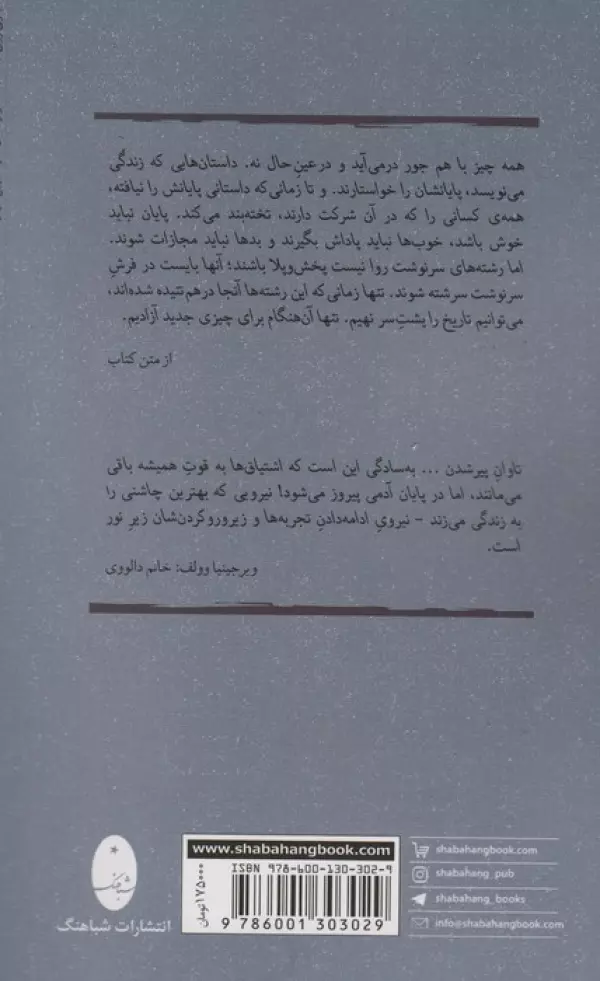 همه چیز با هم جور درمی‌آید و درعینِ‌حال نه. داستان‌هایی که زندگی
می‌نویسد، پایانشان را خواستارند. و تا زمانی‌که داستانی پایانش را نیافته،
همه‌ی کسانی را که در آن شرکت دارند، تخته‌بند می‌کند. پایان نباید
خوش باشد، خوب‌ها نباید پاداش بگیرند و بدها نباید مجازات شوند.
اما رشته‌های سرنوشت روا نیست پخش‌وپلا باشند؛ آنها بایست در فرشِ
سرنوشت سرشته شوند. تنها زمانی‌که این رشته‌ها آنجا درهم‌تنیده شده‌اند،
می‌توانیم تاریخ را پشتِ‌سر نهیم. تنها آن‌هنگام برای چیزی جدید آزادیم.
از متن کتاب
تاوانِ پیرشدن ... به‌سادگی این است که اشتیاق‌ها به قوتِ همیشه باقی
می‌مانند، اما در پایان آدمی پیروز می‌شود! نیرویی که بهترین چاشنی را
به زندگی می‌زند – نیرویِ ادامه‌دادنِ تجربه‌ها و زیروروکردن‌شان زیرِ نور
است.
ویرجینیا وولف: خانم دالووی
www.shabahangbook.com
ISBN 978-600-130-302-9
9 786001 303029
۱۷۵۰۰۰ تومان
shabahangbook.com
shabahang_pub
shabahang_books
info@shabahangbook.com
شباهنگ
انتشارات شباهنگ